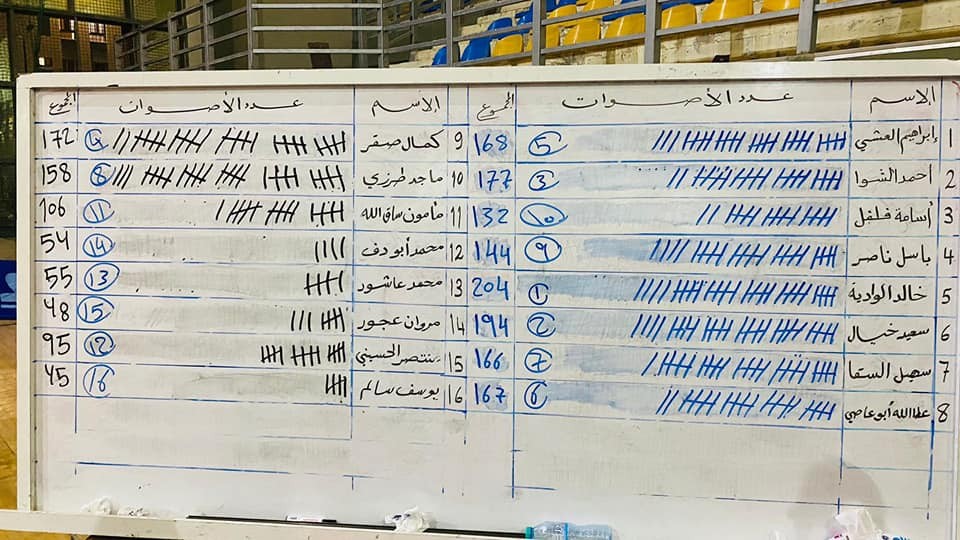 الاسم عدد الأصوات المجموع
1 إبراهيم العشي 5 168
2 أحمد الشوا 3 177
3 أسامة فلفل 10 132
4 باسل ناصر 9 144
5 خالد الوادية 1 204
6 سعيد خيال 2 194
7 سهيل السقا 7 166
8 عطاالله أبو عاصي 6 167
الاسم عدد الأصوات المجموع
9 كمال صقر 172
10 ماجد طرزي 8 158
11 مأمون ساق الله 11 106
12 محمد أبو دف 14 54
13 محمد عاشور 13 55
14 مروان عجور 15 48
15 منتصر الحسيني 12 95
16 يوسف سالم 16 45